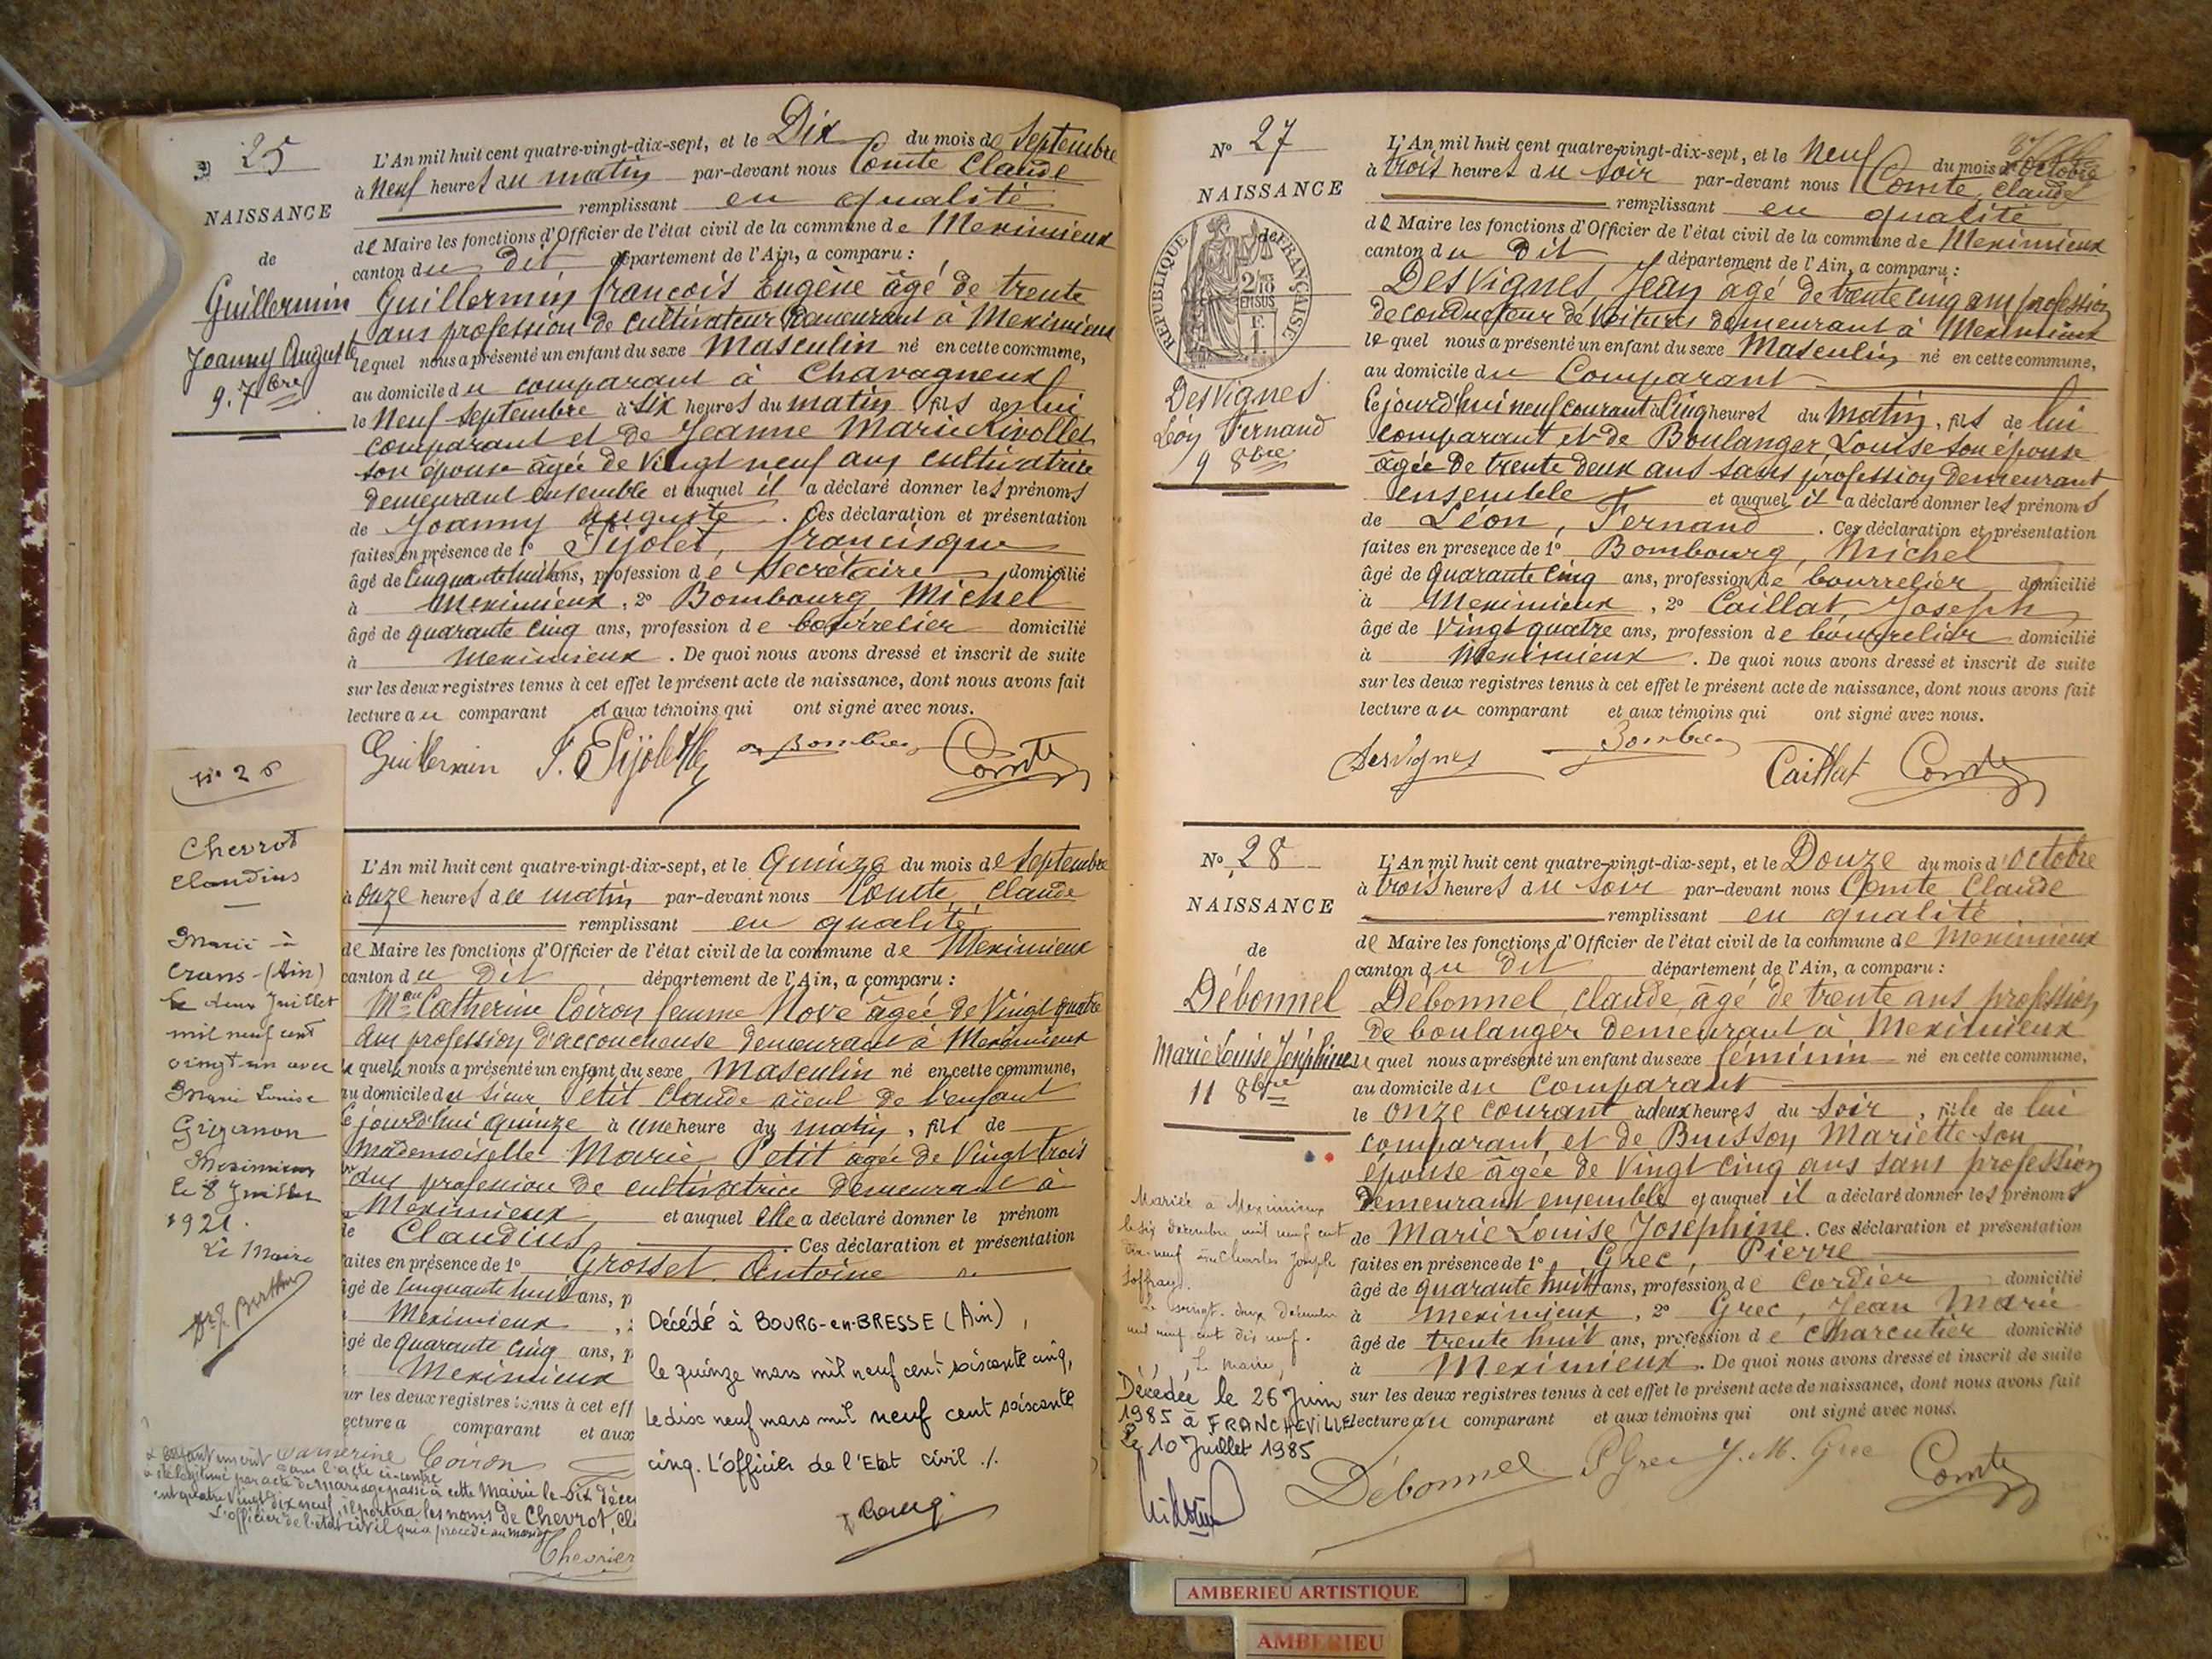 25
NAISSANCE
de
Guillermin
Joanny Auguste
9. 7bre
L'An mil huit cent quatre-vingt-dix-sept, et le Dix du mois de Septembre
à Neuf heures du matin par-devant nous Comte Claude
remplissant en qualité
de Maire les fonctions d'Officier de l'état civil de la commune de Meximieux
canton du dit département de l'Ain, a comparu :
Guillermin françois Eugène âgé de trente
ans profession de cultivateur demeurant à Meximieux
lequel nous a présenté un enfant du sexe Masculin né en cette commune,
au domicile du comparant à Chavagneux
le Neuf Septembre à Six heures du matin fils de lui
comparant et de Jeanne Marie Rivollet
son épouse âgée de Vingt neuf ans cultivatrice
demeurant ensemble et auquel il a déclaré donner les prénoms
de Joanny Auguste. Ces déclaration et présentation
faites en présence de 1° Pijolet, francisque
âgé de Cinquante huit ans, profession de Secrétaire domicilié
à Meximieux, 2° Bombourg Michel
âgé de quarante cinq ans, profession de bourrelier domicilié
à Meximieux. De quoi nous avons dressé et inscrit de suite
sur les deux registres tenus à cet effet le présent acte de naissance, dont nous avons fait
lecture au comparant et aux témoins qui ont signé avec nous.
Guillermin Comte
Chevrot
Claudius
Marié à
Crans-(Ain)
le deux Juillet
mil neuf cent
vingt-un avec
Marie Louise
Meximieux
le 8 Juillet
1921.
Le Maire
L'An mil huit cent quatre-vingt-dix-sept, et le Quinze du mois de Septembre
à onze heures du matin par-devant nous Comte Claude
remplissant en qualité
de Maire les fonctions d'Officier de l'état civil de la commune de Meximieux
canton du Dit département de l'Ain, a comparu :
Catherine Coiron femme Nové âgée de Vingt quatre
ans profession d'accoucheuse demeurant à Meximieux
quelle nous a présenté un enfant du sexe Masculin né en cette commune,
au domicile du Sieur Petit Claude aïeul de l'enfant
le jourd'hui quinze à une heure du matin, fils de
Mademoiselle Marie Petit âgée de Vingt trois
ans profession de cultivatrice demeurant à
Meximieux et auquel elle a déclaré donner le prénom
de Claudius Ces déclaration et présentation
faites en présence de 1° Grosset Antoine
âgé de Cinquante huit ans, p
Meximieux
âgé de Quarante cinq ans, p
Meximieux
sur les deux registres tenus à cet eff
lecture a comparant et aux
Catherine Coiron
L'enfant inscrit dans l'acte ci-contre
a été légitimé par acte de mariage passé à cette Mairie le Dix déce
ent quatre Vingt dix neuf, il portera les noms de Chevrot, Cl
L'officier de l'état civil qui a procédé au mariage
Chevrier
Décédé à BOURG-en-BRESSE (Ain),
le quinze mars mil neuf cent soixante cinq,
le dix neuf mars mil neuf cent soixante
cinq. L'officier de l'Etat civil ./.
N° 27
NAISSANCE
de
REPUBLIQUE FRANÇAISE
DesVignes
Léon Fernand
9 8bre
L'An mil huit cent quatre-vingt-dix-sept, et le Neuf du mois d'Octobre
à trois heures du Soir par-devant nous Comte Claude
remplissant en qualité
de Maire les fonctions d'Officier de l'état civil de la commune de Meximieux
canton du Dit département de l'Ain, a comparu :
DesVignes Jean âgé de trente cinq ans profession
de conducteur de Voitures demeurant à Meximieux
lequel nous a présenté un enfant du sexe Masculin né en cette commune,
au domicile du Comparant
le jourd'hui neuf courant à Cinq heures du Matin, fils de lui
comparant et de Boulanger Louise son épouse
âgée de trente deux ans sans profession demeurant
ensemble et auquel il a déclaré donner les prénoms
de Léon, Fernand. Ces déclaration et présentation
faites en présence de 1° Bombourg, Michel
âgé de Quarante Cinq ans, profession de bourrelier domicilié
à Meximieux, 2° Caillat Joseph
âgé de Vingt quatre ans, profession de bourrelier domicilié
à Meximieux. De quoi nous avons dressé et inscrit de suite
sur les deux registres tenus à cet effet le présent acte de naissance, dont nous avons fait
lecture au comparant et aux témoins qui ont signé avec nous.
DesVignes Caillat Comte
N° 28
NAISSANCE
de
Débonnel
Marie Louise Joséphine
11 8bre
L'An mil huit cent quatre-vingt-dix-sept, et le Douze du mois d'Octobre
à trois heures du Soir par-devant nous Comte Claude
remplissant en qualité
de Maire les fonctions d'Officier de l'état civil de la commune de Meximieux
canton du Dit département de l'Ain, a comparu :
Débonnel, Claude, âgé de trente ans profession
de boulanger demeurant à Meximieux
le quel nous a présenté un enfant du sexe féminin né en cette commune,
au domicile du comparant
le onze courant à deux heures du Soir, fille de lui
comparant et de Buisson Mariette son
épouse âgée de Vingt Cinq ans sans profession
demeurant ensemble et auquel il a déclaré donner les prénoms
de Marie Louise Joséphine. Ces déclaration et présentation
faites en présence de 1° Grec, Pierre
âgé de quarante huit ans, profession de Cordier domicilié
à Meximieux, 2° Grec, Jean Marie
âgé de trente huit ans, profession de Charcutier domicilié
à Meximieux. De quoi nous avons dressé et inscrit de suite
sur les deux registres tenus à cet effet le présent acte de naissance, dont nous avons fait
lecture au comparant et aux témoins qui ont signé avec nous.
Débonnel P Grec J. M. Grec Comte
Mariée à Meximieux
le six décembre mil neuf cent
dix-neuf à Charles Joseph
Le vingt-deux Décembre
mil neuf cent dix neuf.
Le Maire,
Décédée le 26 Juin
1985 à FRANCHEVILLE
Le 10 Juillet 1985
AMBERIEU ARTISTIQUE
AMBERIEU